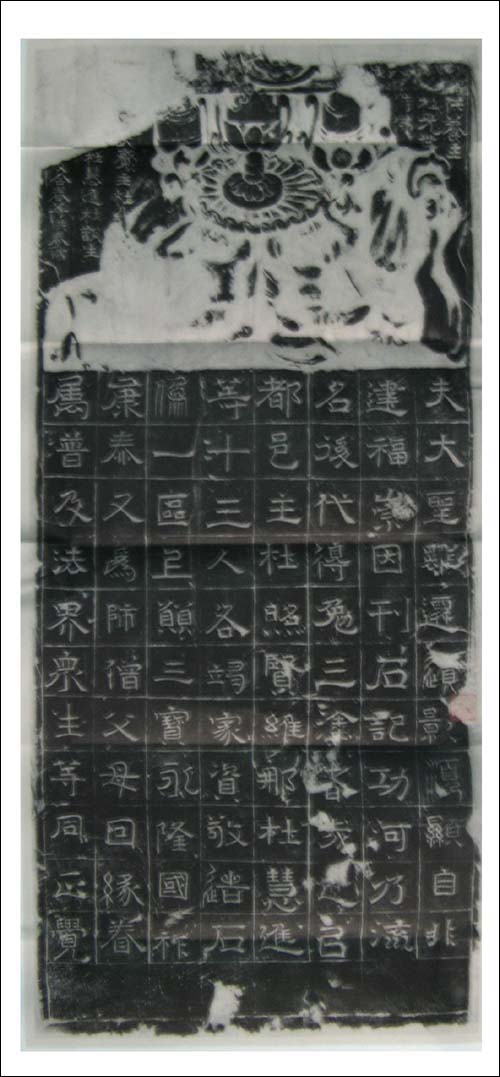 夫大聖 遷 影 顯自非
建福崇因刊石記功河乃流
名後代得免三塗者 邑
都邑主杜照賢維那杜慧進
等十三人各竭家資敬造石
像一區上願三寶永隆國祚
康泰又為師僧父母回緣眷
屬普及法界眾生等同正覺